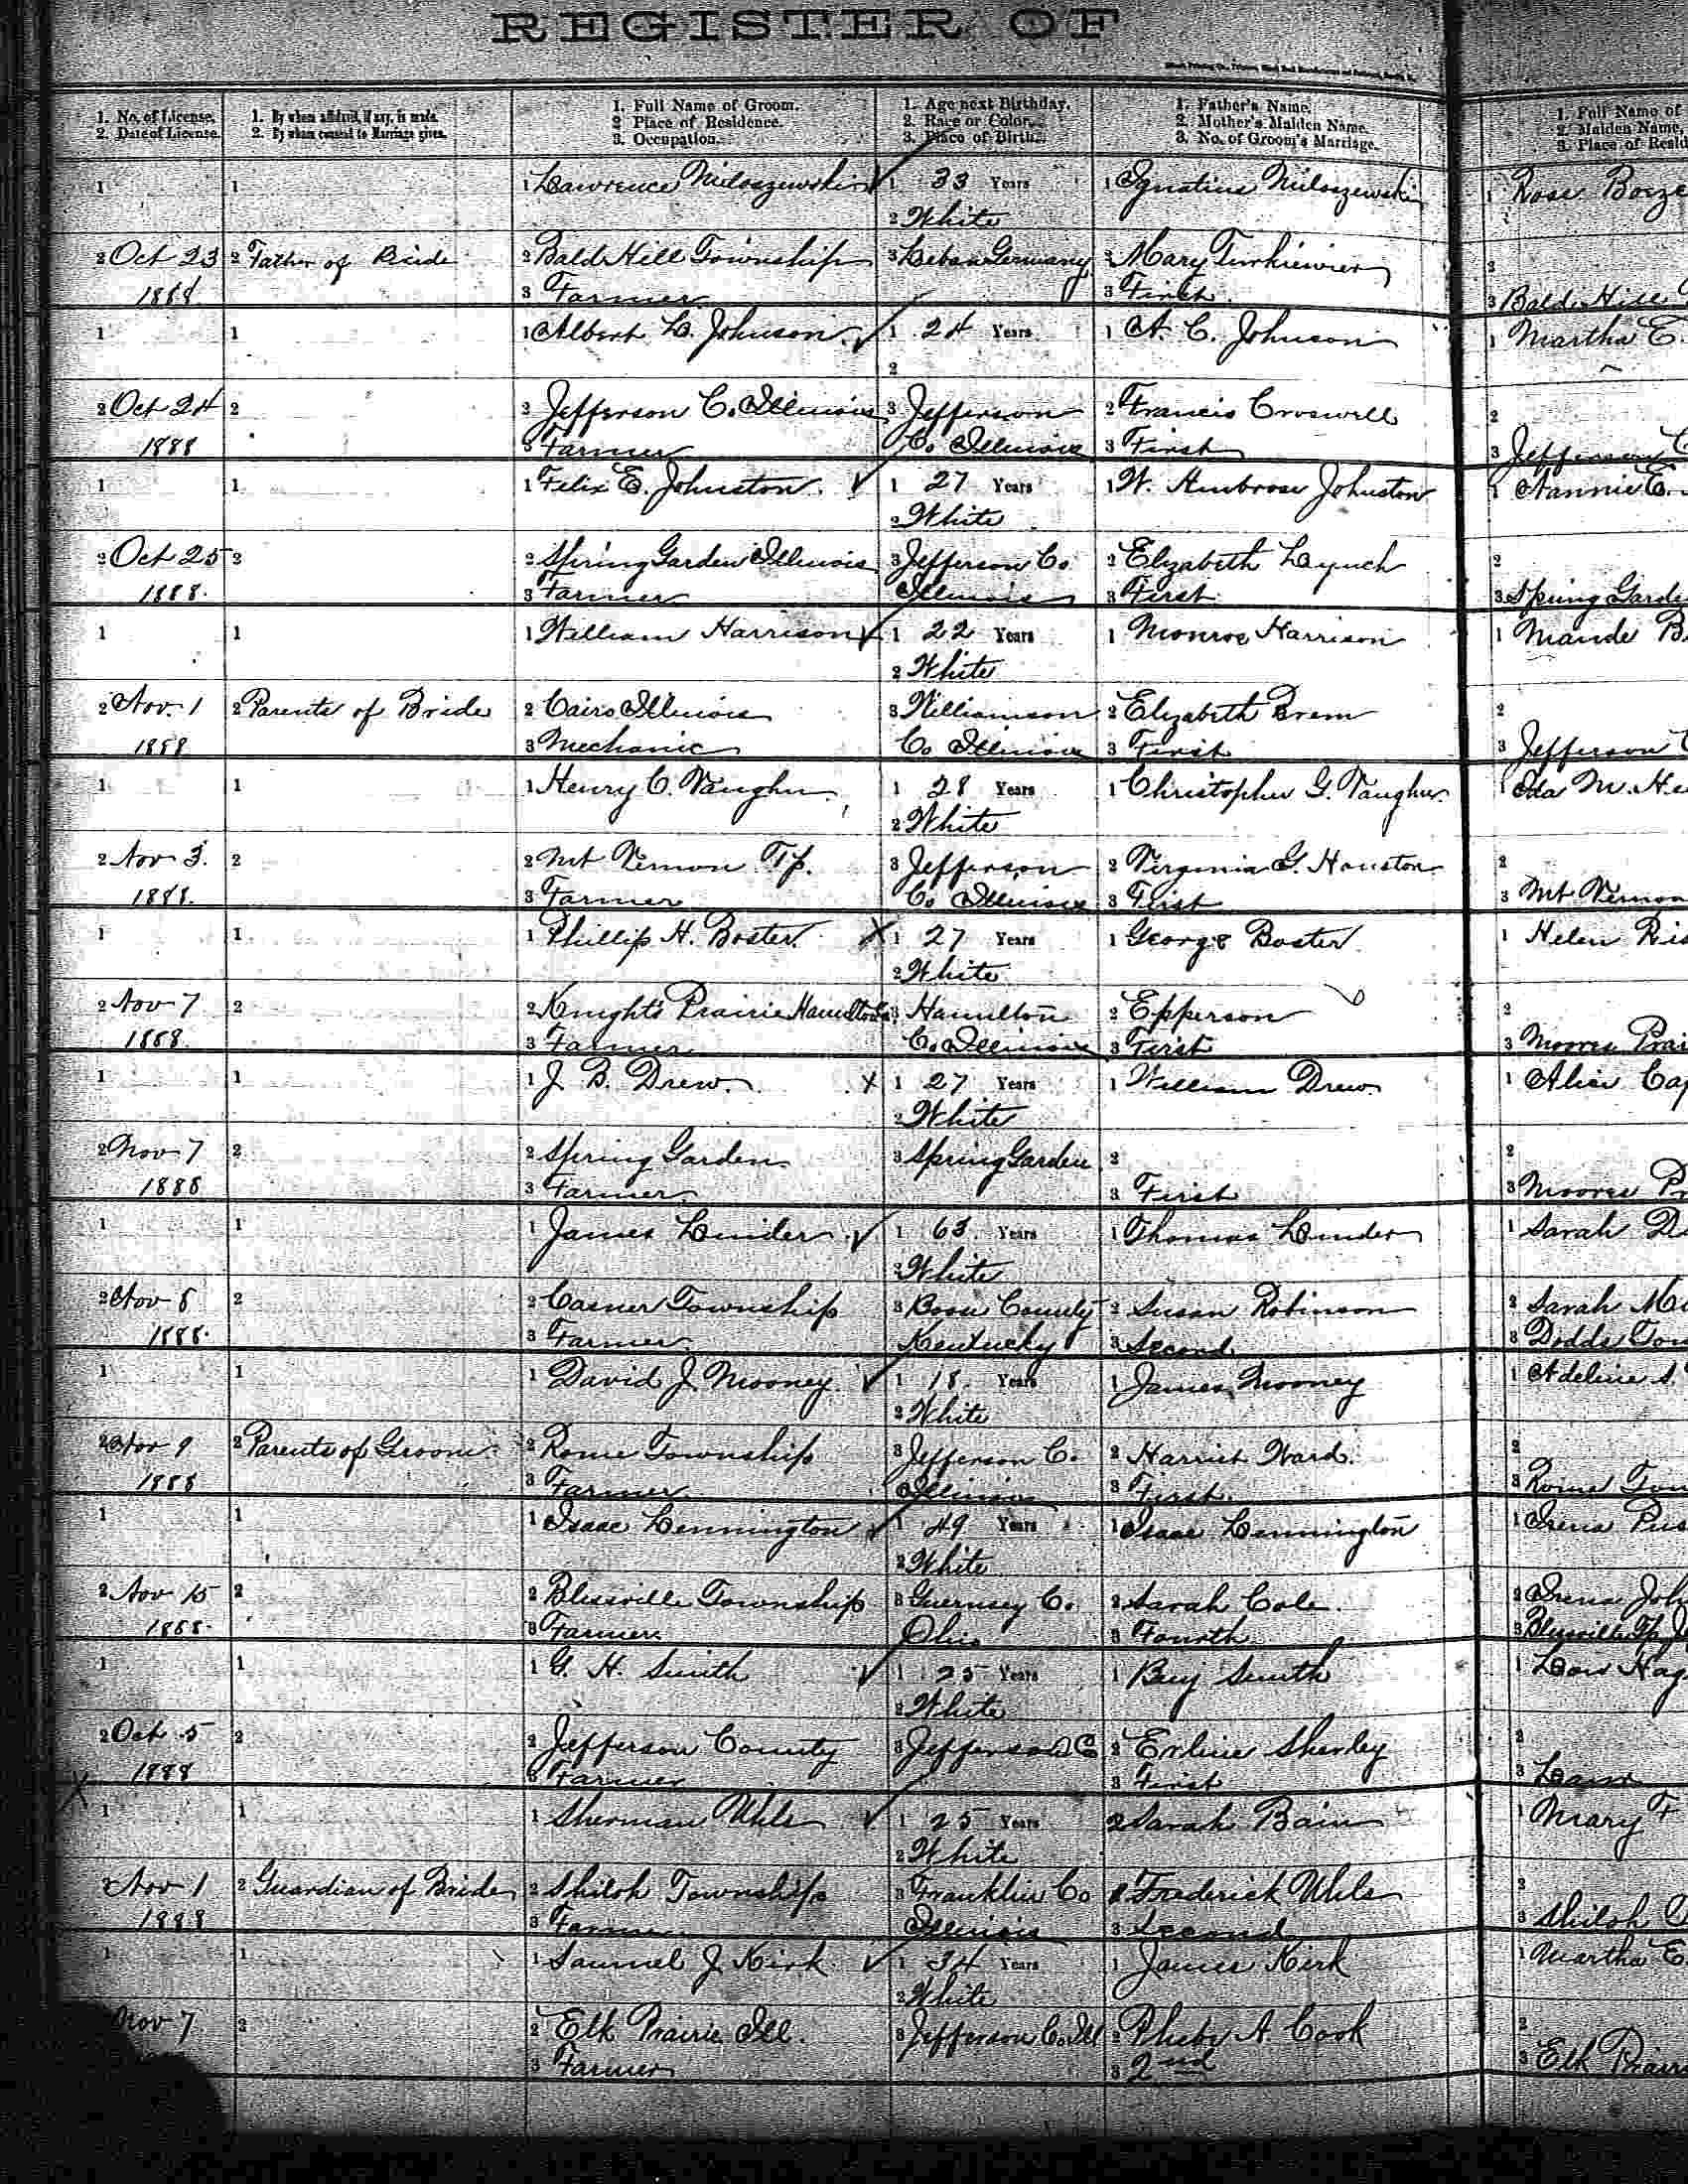 REGISTER OF
1. No. of License.
2. Date of License.
1. By whom affidavit, if any, is made.
2. By whom consent to Marriage given.
1. Full Name of Groom.
2 Place of Residence.
3. Occupation.
1. Age next Birthday.
2. Race or Color.
3. Place of Birth.
1. Father's Name.
2. Mother's Maiden Name.
3. No. of Groom's Marriage.
1. Full Name of
2. Maiden Name,
3. Place of Resid
1 1 1 Lawrence Miloszewski 1 33 Years 1 Ignatius Miloszewski 1 Rose
2 White
2 Oct 23 2 Father of Bride 2 Bald Hill Township 3 Germany 2 Mary 2
1888 3 Farmer 3 First 3 Bald Hill
1 1 1 Albert L. Johnson 1 24 Years 1 A. C. Johnson 1 Martha E.
2
2 Oct 24 2 2 Jefferson C. Illinois 3 Jefferson 2 Francis Croswell 2
1888 3 Farmer Co Illinois 3 First 3 Jefferson C
1 1 1 Felix E. Johnston 1 27 Years 1 W. Ambrose Johnston 1 Nannie E.
2 White
2 Oct 25 2 2 Spring Garden Illinois 3 Jefferson Co 2 Elizabeth Lynch 2
1888. 3 Farmer Illinois 3 First 3 Spring Garde
1 1 1 William Harrison 1 22 Years 1 Monroe Harrison 1 Maude B
2 White
2 Nov. 1 2 Parents of Bride 2 Cairo Illinois 3 Williamson 2 Elizabeth Brem 2
1888 3 Mechanic Co Illinois 3 First 3 Jefferson C
1 1 1 Henry C. Vaughn 1 28 Years 1 Christopher G. Vaughn 1 Ida M. He
2 White
2 Nov 3. 2 2 Mt Vernon Tp. 3 Jefferson 2 Virginia G. Houston 2
1888. 3 Farmer Co Illinois 3 First 3 Mt Vernon
1 1 1 Phillip H. Boster 1 27 Years 1 George Boster 1 Helen Ris
2 White
2 Nov 7 2 2 Knights Prairie Hamilton Co 3 Hamilton 2 Epperson 2
1888. 3 Farmer Co. Illinois 3 First 3 Moores Prai
1 1 1 J. B. Drew 1 27 Years 1 William Drew 1 Alice Cap
2 White
2 Nov 7 2 2 Spring Garden 3 Spring Garden 2 2
1888 3 Farmer 3 First 3 Moores Pr
1 1 1 James Linder 1 63 Years 1 Thomas Linder 1 Sarah
2 White
2 Nov 8 2 2 Casner Township 3 County 2 Susan Robinson 2 Sarah
1888. 3 Farmer Kentucky 3 Second 3 Dodds Tow
1 1 1 David J. Mooney 1 18 Years 1 James Mooney 1 Adeline
2 White
2 Nov 9 2 Parents of Groom 2 Rome Township 3 Jefferson C. 2 Harriet Ward. 2
1888 3 Farmer Illinois 3 First 3 Rome Tow
1 1 1 Isaac Lennington 1 49 Years 1 Isaac Lennington 1 Irena
2 White
2 Nov 15 2 2 Blissville Township 3 Guernsey C. 2 Sarah Cole 2 Irena Joh
1888. 3 Farmer Ohio 3 Fourth 3 Blissville Tp
1 1 1 G. H. Smith 1 25 Years 1 Benj Smith 1 Hag
2 White
2 Oct 5 2 2 Jefferson County 3 Jefferson C 2 Erline Sherley 2
1888 3 Farmer 3 First 3
1 1 1 Sherman Uhls 1 25 Years 2 Sarah Bain 1 Mary F
2 White
2 Nov 1 2 Guardian of Bride 2 Shiloh Township 3 Franklin Co 1 Frederick Uhls 2
1888 3 Farmer Illinois 3 Second 3 Shiloh
1 1 1 Samuel J. Kirk 1 34 Years 1 James Kirk 1 Martha E.
2 White
Nov 7 2 2 Elk Prairie Ill. 3 Jefferson Co Ill 2 Pheby A Cook 2
3 Farmer 3 2nd 3 Elk Prairi